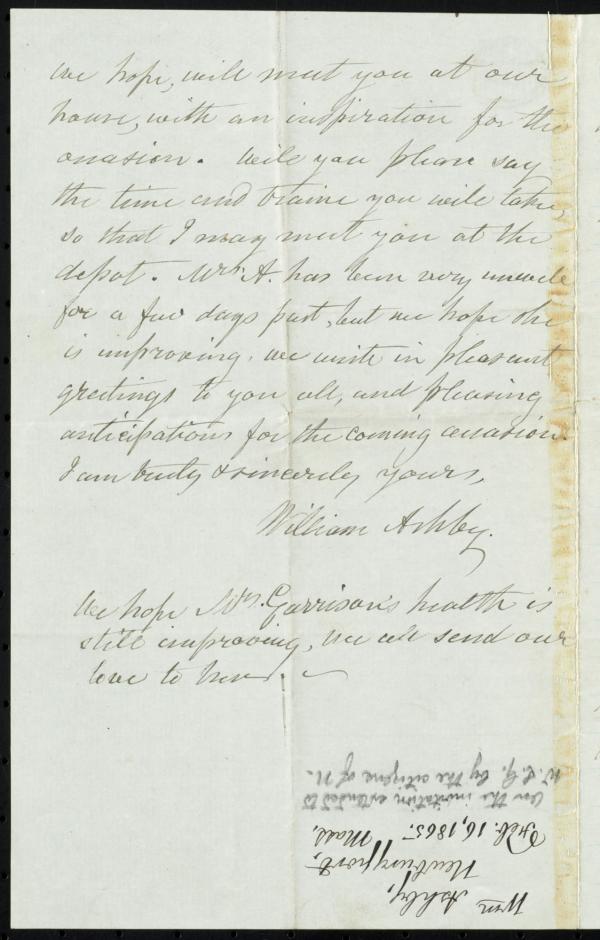 we hope, will meet you at our
house, with an inspiration for the
occasion. Will you please say
the time and traine you will take,
so that I may meet you at the
depot. Mrs A. has been very unwell
for a few days past, but we hope she
is improving. we unite in pleasant
greetings to you all, and pleasing
anticipations for the coming occasion.
I am truly & sincerely yours,
William Ashby.
We hope Mrs. Garrison's health is
still improving, we all send our
love to her.
Wm Ashby,
Newburyport,
Mass.
Feb. 16, 1865.
On the invitation extended to
W. L. G. by the citizens of N.